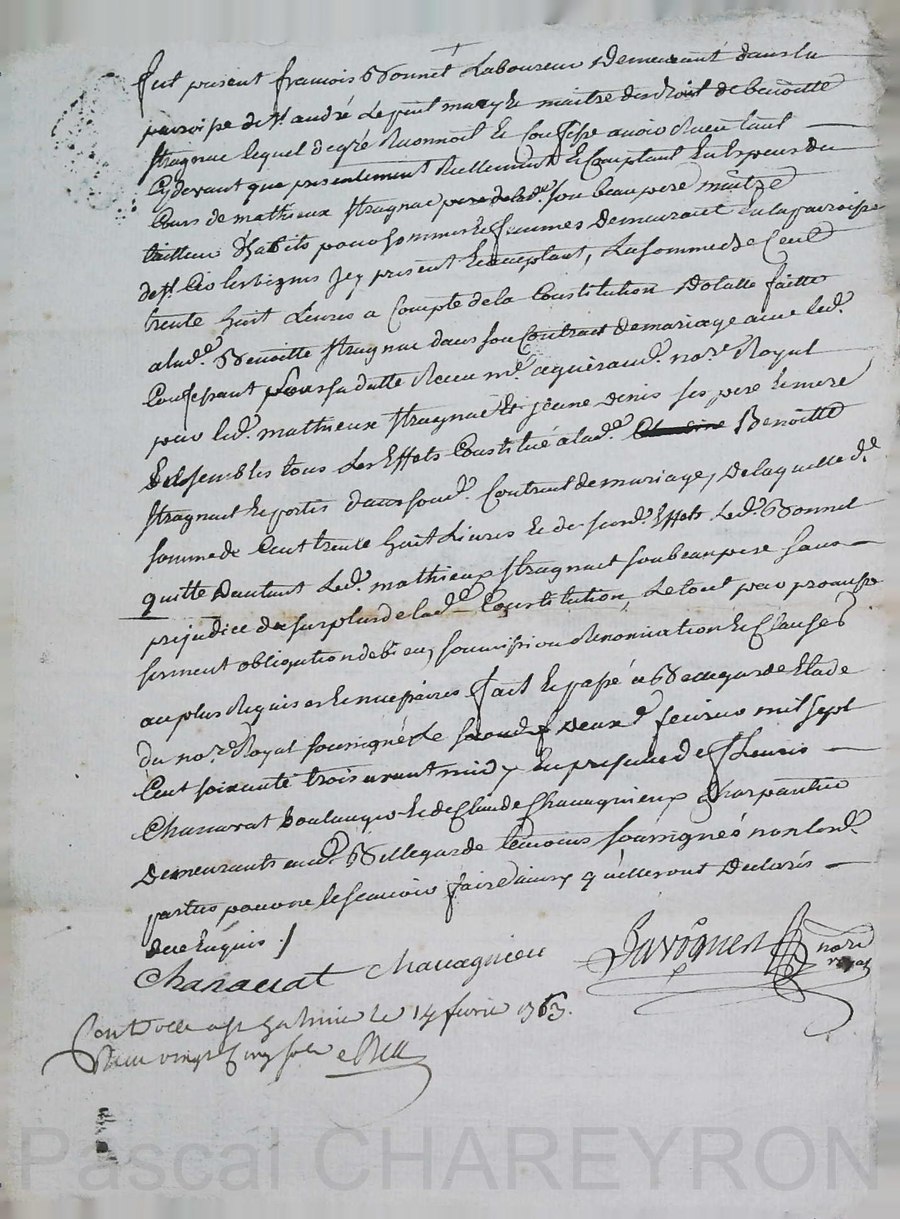 fut présent françois Bonnet Laboureur Demeurant dans la
paroisse de st. andré Le puit mary & maitre des droit de benoitte
stragnac lequel de gré Reconnoit & Confesse avoir Receu tant
Cydevant que presentement Reellement & Comptant En Especes du
Cours de mathieux stragnac pere de lade. son beau pere maitre
tailleur d'habits pour hommes & femmes Demeurant En la paroisse
de st. Cir les vignes Jcy present & acceptant, La somme de Cent
trente huit Livres a Compte de la Constitution Dotalle faitte
a lade. Benoitte stragnac dans son Contract de mariage avec led.
Confessant sous sa datte Receu me. nore. Royal
par led. mathieux stragnac Et jeane denis ses pere & mere
Ensembles tous Les Effets Constitué a lade. Claudine Benoitte
stragnat & portés dans sond. Contract de mariage, De laquelle de.
somme de Cent trente huit Livres & de susd. Effets Led. Bonnet
quitte D'autant Led. mathieux stragnat son beau pere sans
prejudice du surplus de lade. Constitution, Le tout par promesse
serment obligation de bien, soumission Renonciation & Clauses
au plus Requises & necessaires fait & passé a Bellegarde Etude
du nore. Royal soussigné Le second Deux e. fevrier mil sept
Cent soixante trois avant midy En presence de sr Louis
Chanavat Boulanger & de Claude Chavagnieux Charpantier
Demeurants aud. Bellegarde temoins soussignés non lesd.
parties pour ne le scavoir faire ainsy qu'elles ont Declarés
de ce Enquis ./
Chanavat Chavagnieu Javognen nore royal
Controllé a St Galmier le 14 fevrier 1763.
Reçu vingt Cinq sols
Pascal CHAREYRON